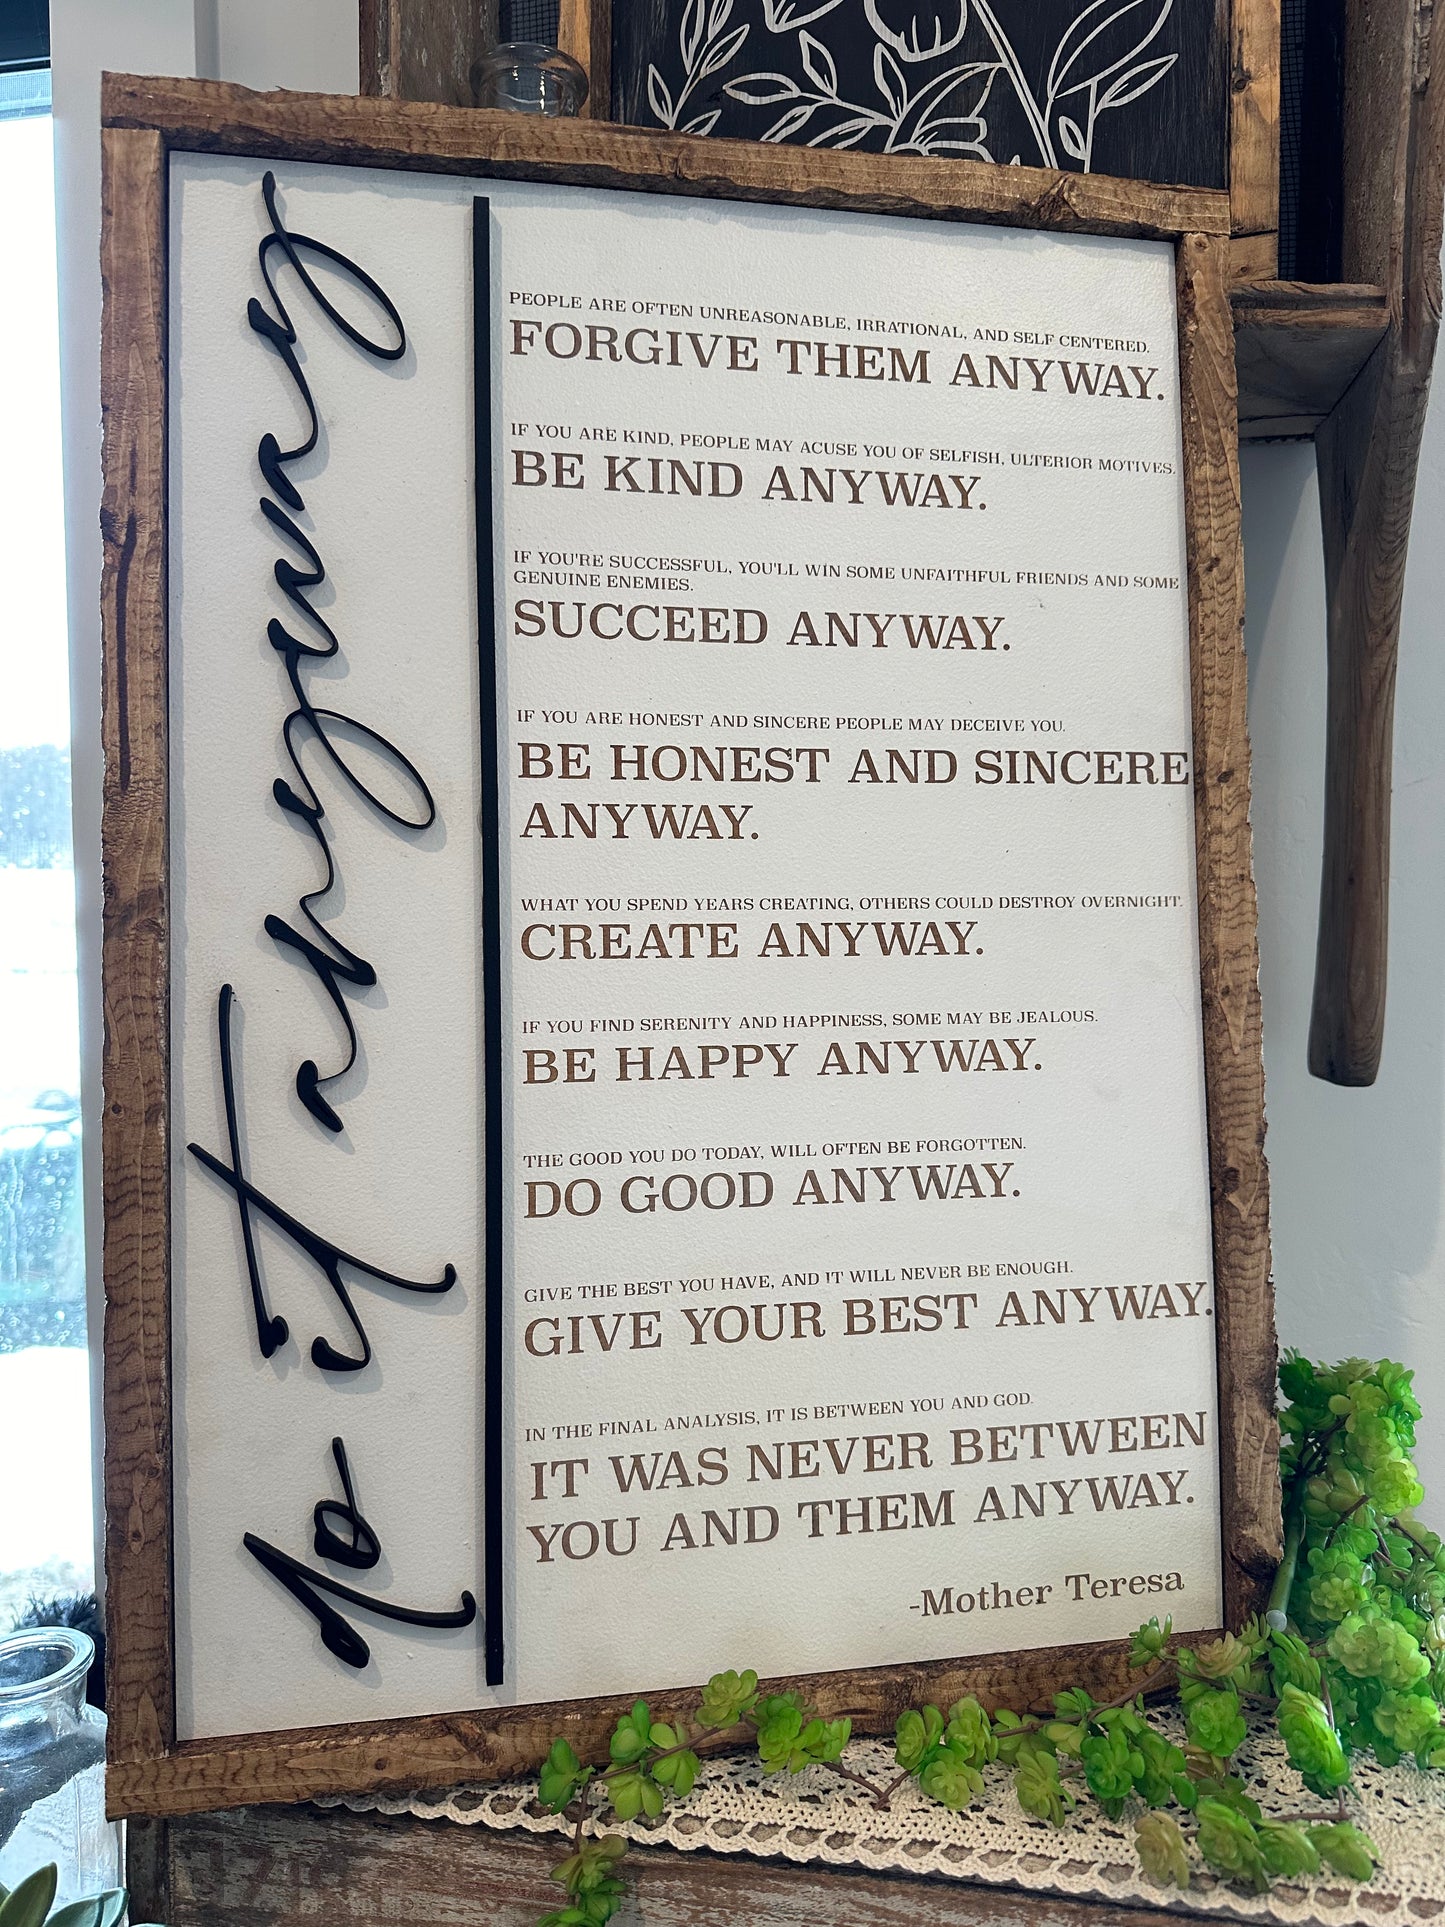 Do It Anyway
PEOPLE ARE OFTEN UNREASONABLE, IRRATIONAL, AND SELF CENTERED.
FORGIVE THEM ANYWAY.
IF YOU ARE KIND, PEOPLE MAY ACUSE YOU OF SELFISH, ULTERIOR MOTIVES.
BE KIND ANYWAY.
IF YOU'RE SUCCESSFUL, YOU'LL WIN SOME UNFAITHFUL FRIENDS AND SOME
GENUINE ENEMIES.
SUCCEED ANYWAY.
IF YOU ARE HONEST AND SINCERE PEOPLE MAY DECEIVE YOU.
BE HONEST AND SINCERE
ANYWAY.
WHAT YOU SPEND YEARS CREATING, OTHERS COULD DESTROY OVERNIGHT.
CREATE ANYWAY.
IF YOU FIND SERENITY AND HAPPINESS, SOME MAY BE JEALOUS.
BE HAPPY ANYWAY.
THE GOOD YOU DO TODAY, WILL OFTEN BE FORGOTTEN.
DO GOOD ANYWAY.
GIVE THE BEST YOU HAVE, AND IT WILL NEVER BE ENOUGH.
GIVE YOUR BEST ANYWAY.
IN THE FINAL ANALYSIS, IT IS BETWEEN YOU AND GOD.
IT WAS NEVER BETWEEN
YOU AND THEM ANYWAY.
-Mother Teresa